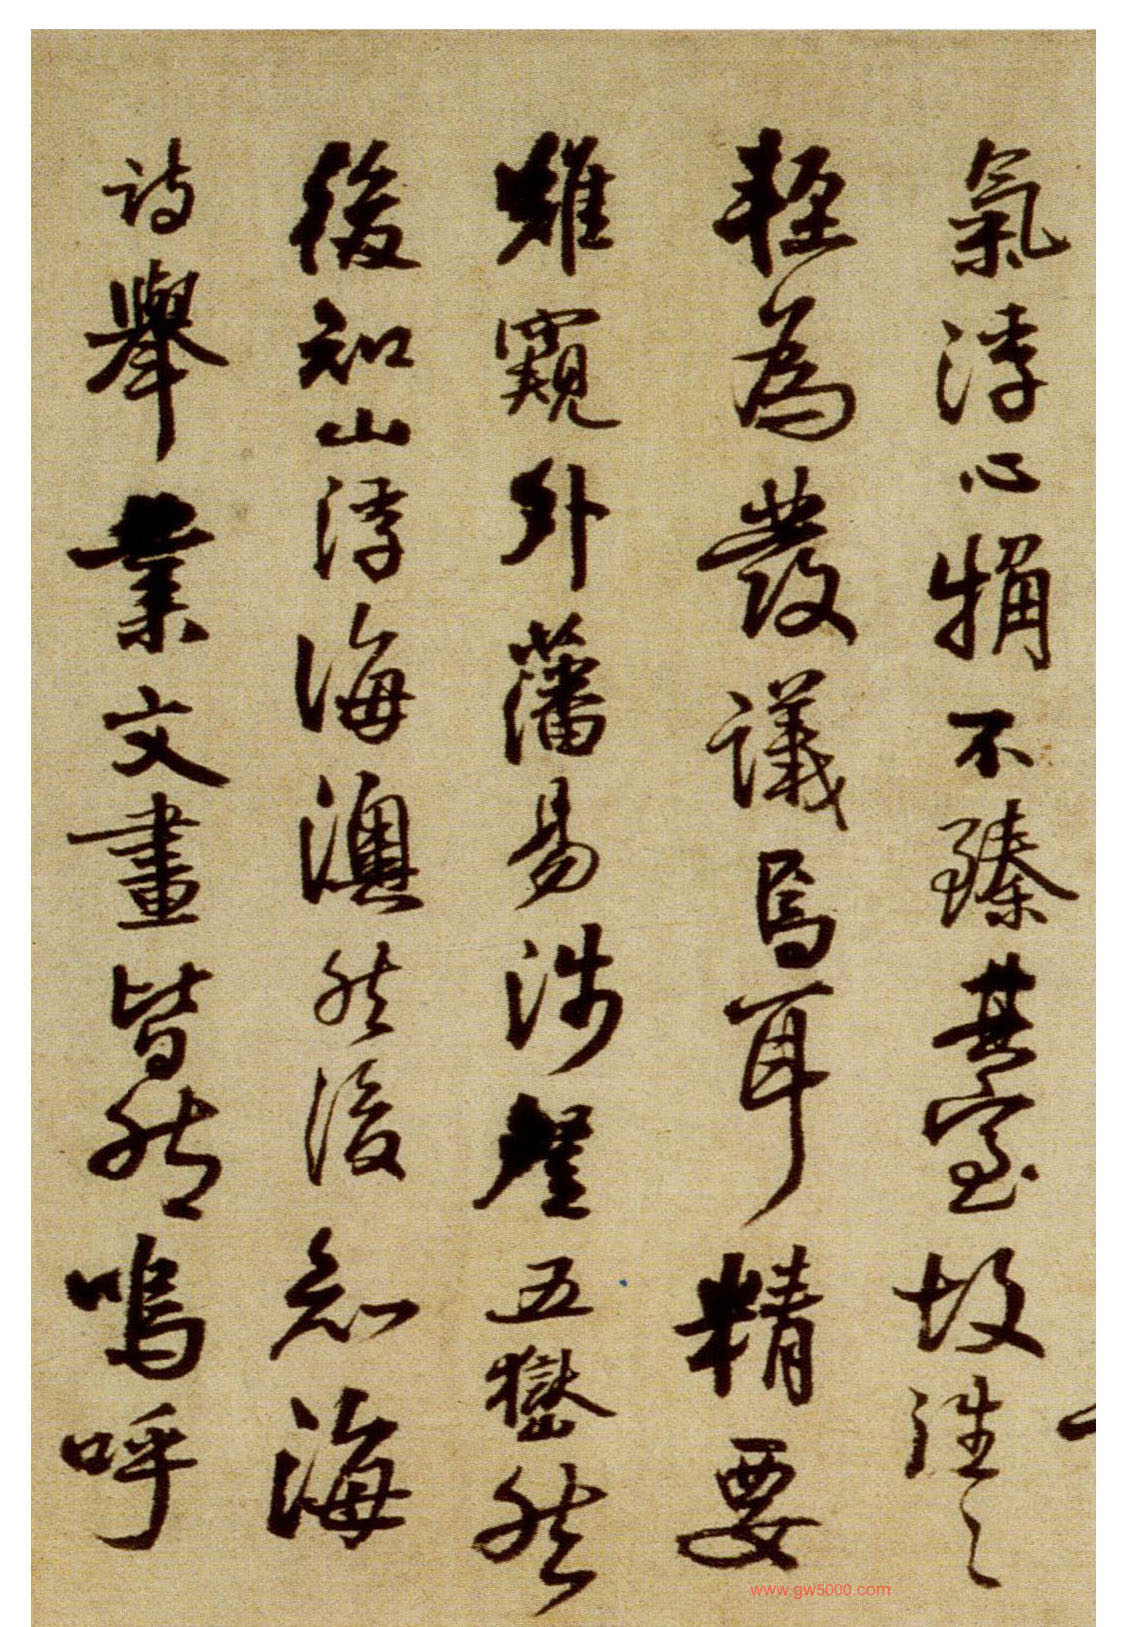 氣浮心觕不臻其室故往々
輕為發議焉耳精要
雖窺外藩易涉登五嶽然
後知山浮海澳然後知海
詩舉業文畫皆然嗚呼
www.gw5000.com